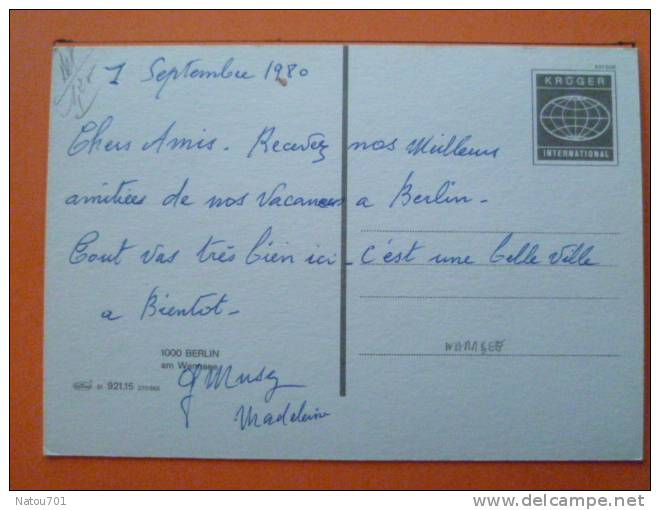 1 Septembre 1980
KRÜGER
INTERNATIONAL
Chers Amis. Recevez nos Meilleurs
amitiées de nos Vacances a Berlin -
Tout vas très bien ici - c'est une belle ville
a Bientot -
WANNSEE
1000 BERLIN
am Wannsee
921.15
Madeleine
Natou701
www.delcampe.net